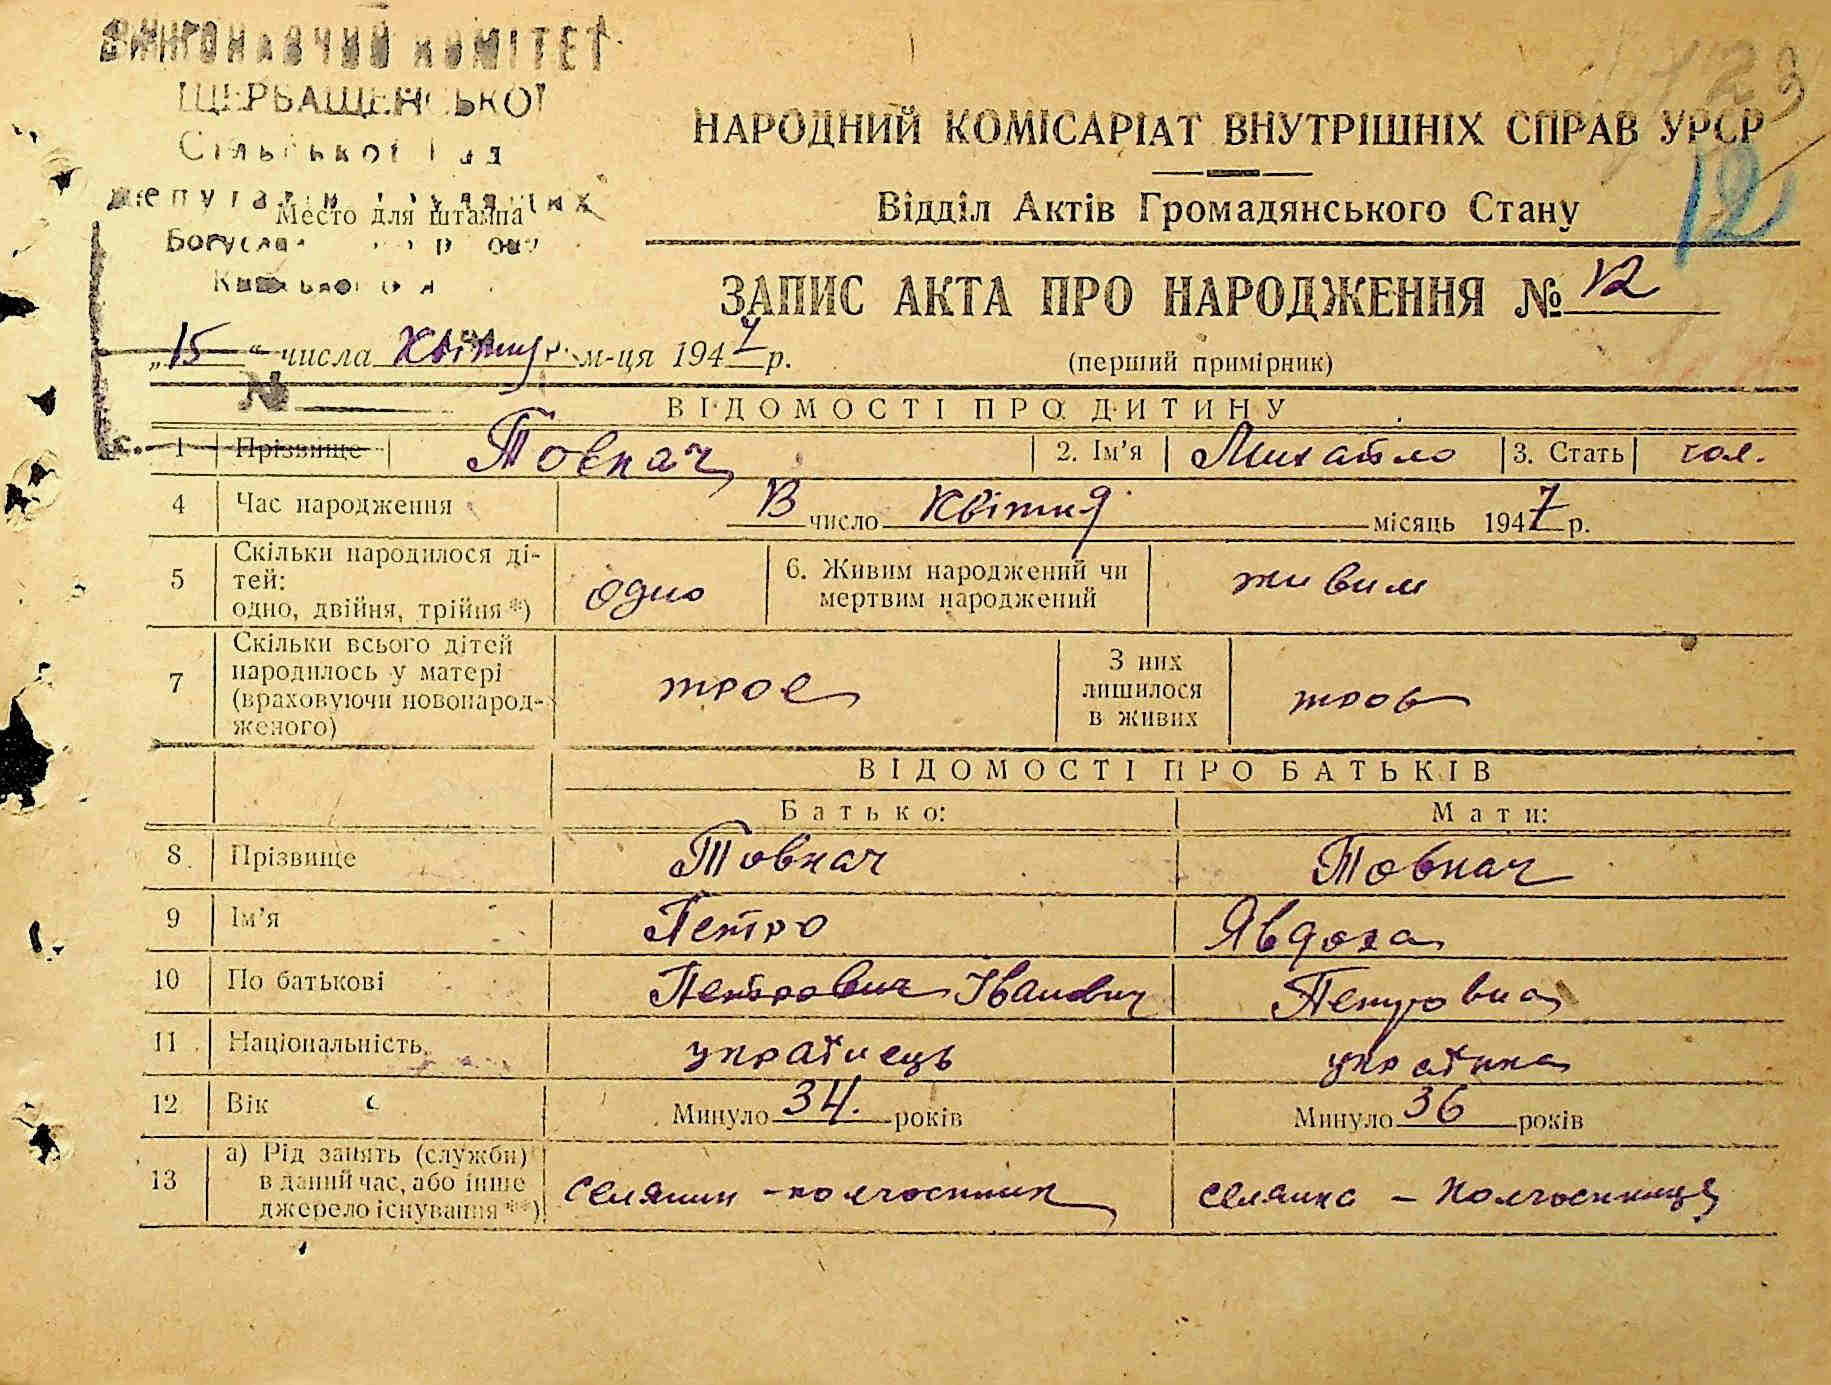 ВИКОНАВЧИЙ КОМІТЕТ
ЩЕРБАШЕНСЬКОЇ
Сільської Рад
депутатів трудящих
Место для штампа
Богуслав
Київської
НАРОДНИЙ КОМІСАРІАТ ВНУТРІШНІХ СПРАВ УРСР
Відділ Актів Громадянського Стану
12
ЗАПИС АКТА ПРО НАРОДЖЕННЯ № 12
„15“ числа квітня м-ця 1947 р.
(перший примірник)
№
ВІДОМОСТІ ПРО ДИТИНУ
1 Прізвище Товкач 2. Ім'я Михайло 3. Стать чол.
4 Час народження 13 число квітня місяць 1947 р.
5 Скільки народилося ді-
тей:
одно, двійня, трійня*) одно 6. Живим народжений чи
мертвим народжений живим
7 Скільки всього дітей
народилось у матері
(враховуючи новонарод-
женого) троє З них
лишилося
в живих троє
ВІДОМОСТІ ПРО БАТЬКІВ
Батько: Мати:
8 Прізвище Товкач Товкач
9 Ім'я Петро Явдоха
10 По батькові Петрович Іванович Петровна
11 Національність українець українка
12 Вік Минуло 34 років Минуло 36 років
13 а) Рід занять (служби)
в даний час, або інше
джерело існування**) селянин - колгоспник селянка - колгоспниця